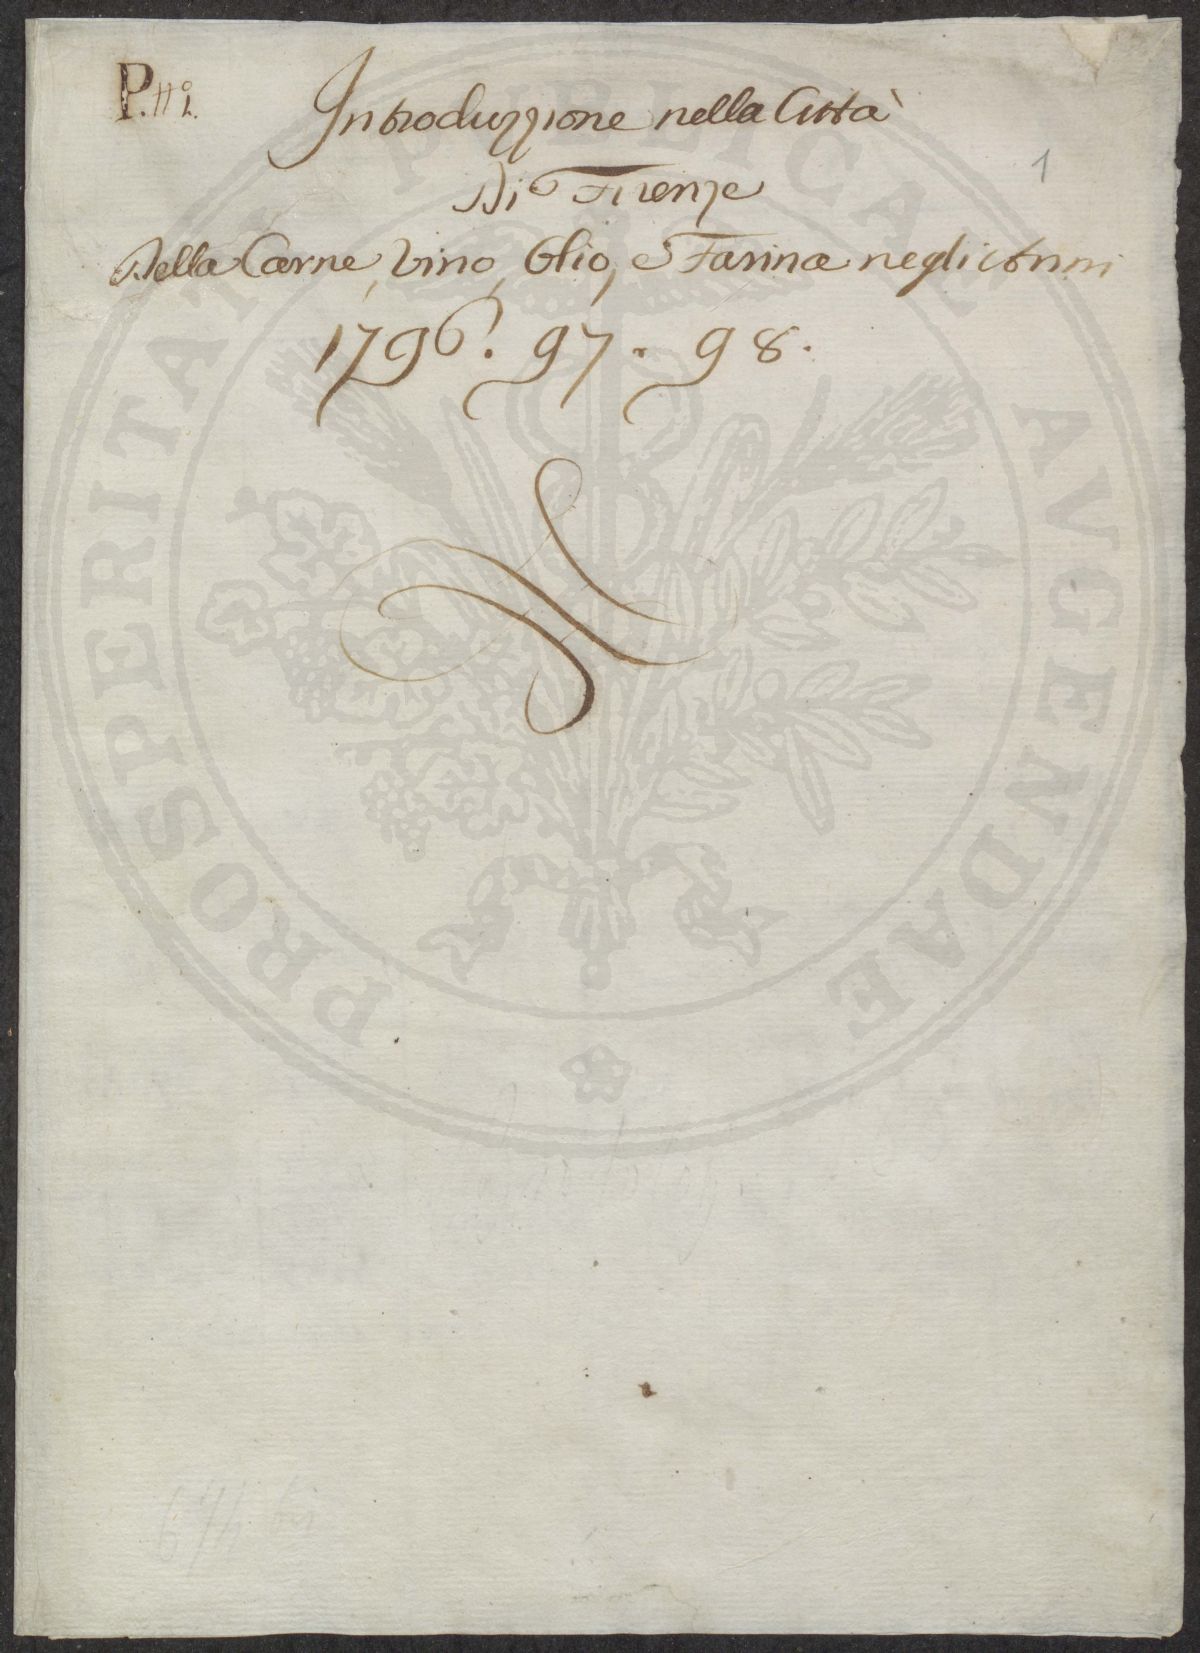 P. n° 1.
Introduzzione nella Città
1
Di Firenze
Della Carne, Vino, Olio, e Farina negli Anni
1796. 97. 98.
PROSPERITATI PUBLICAE AVGENDAE